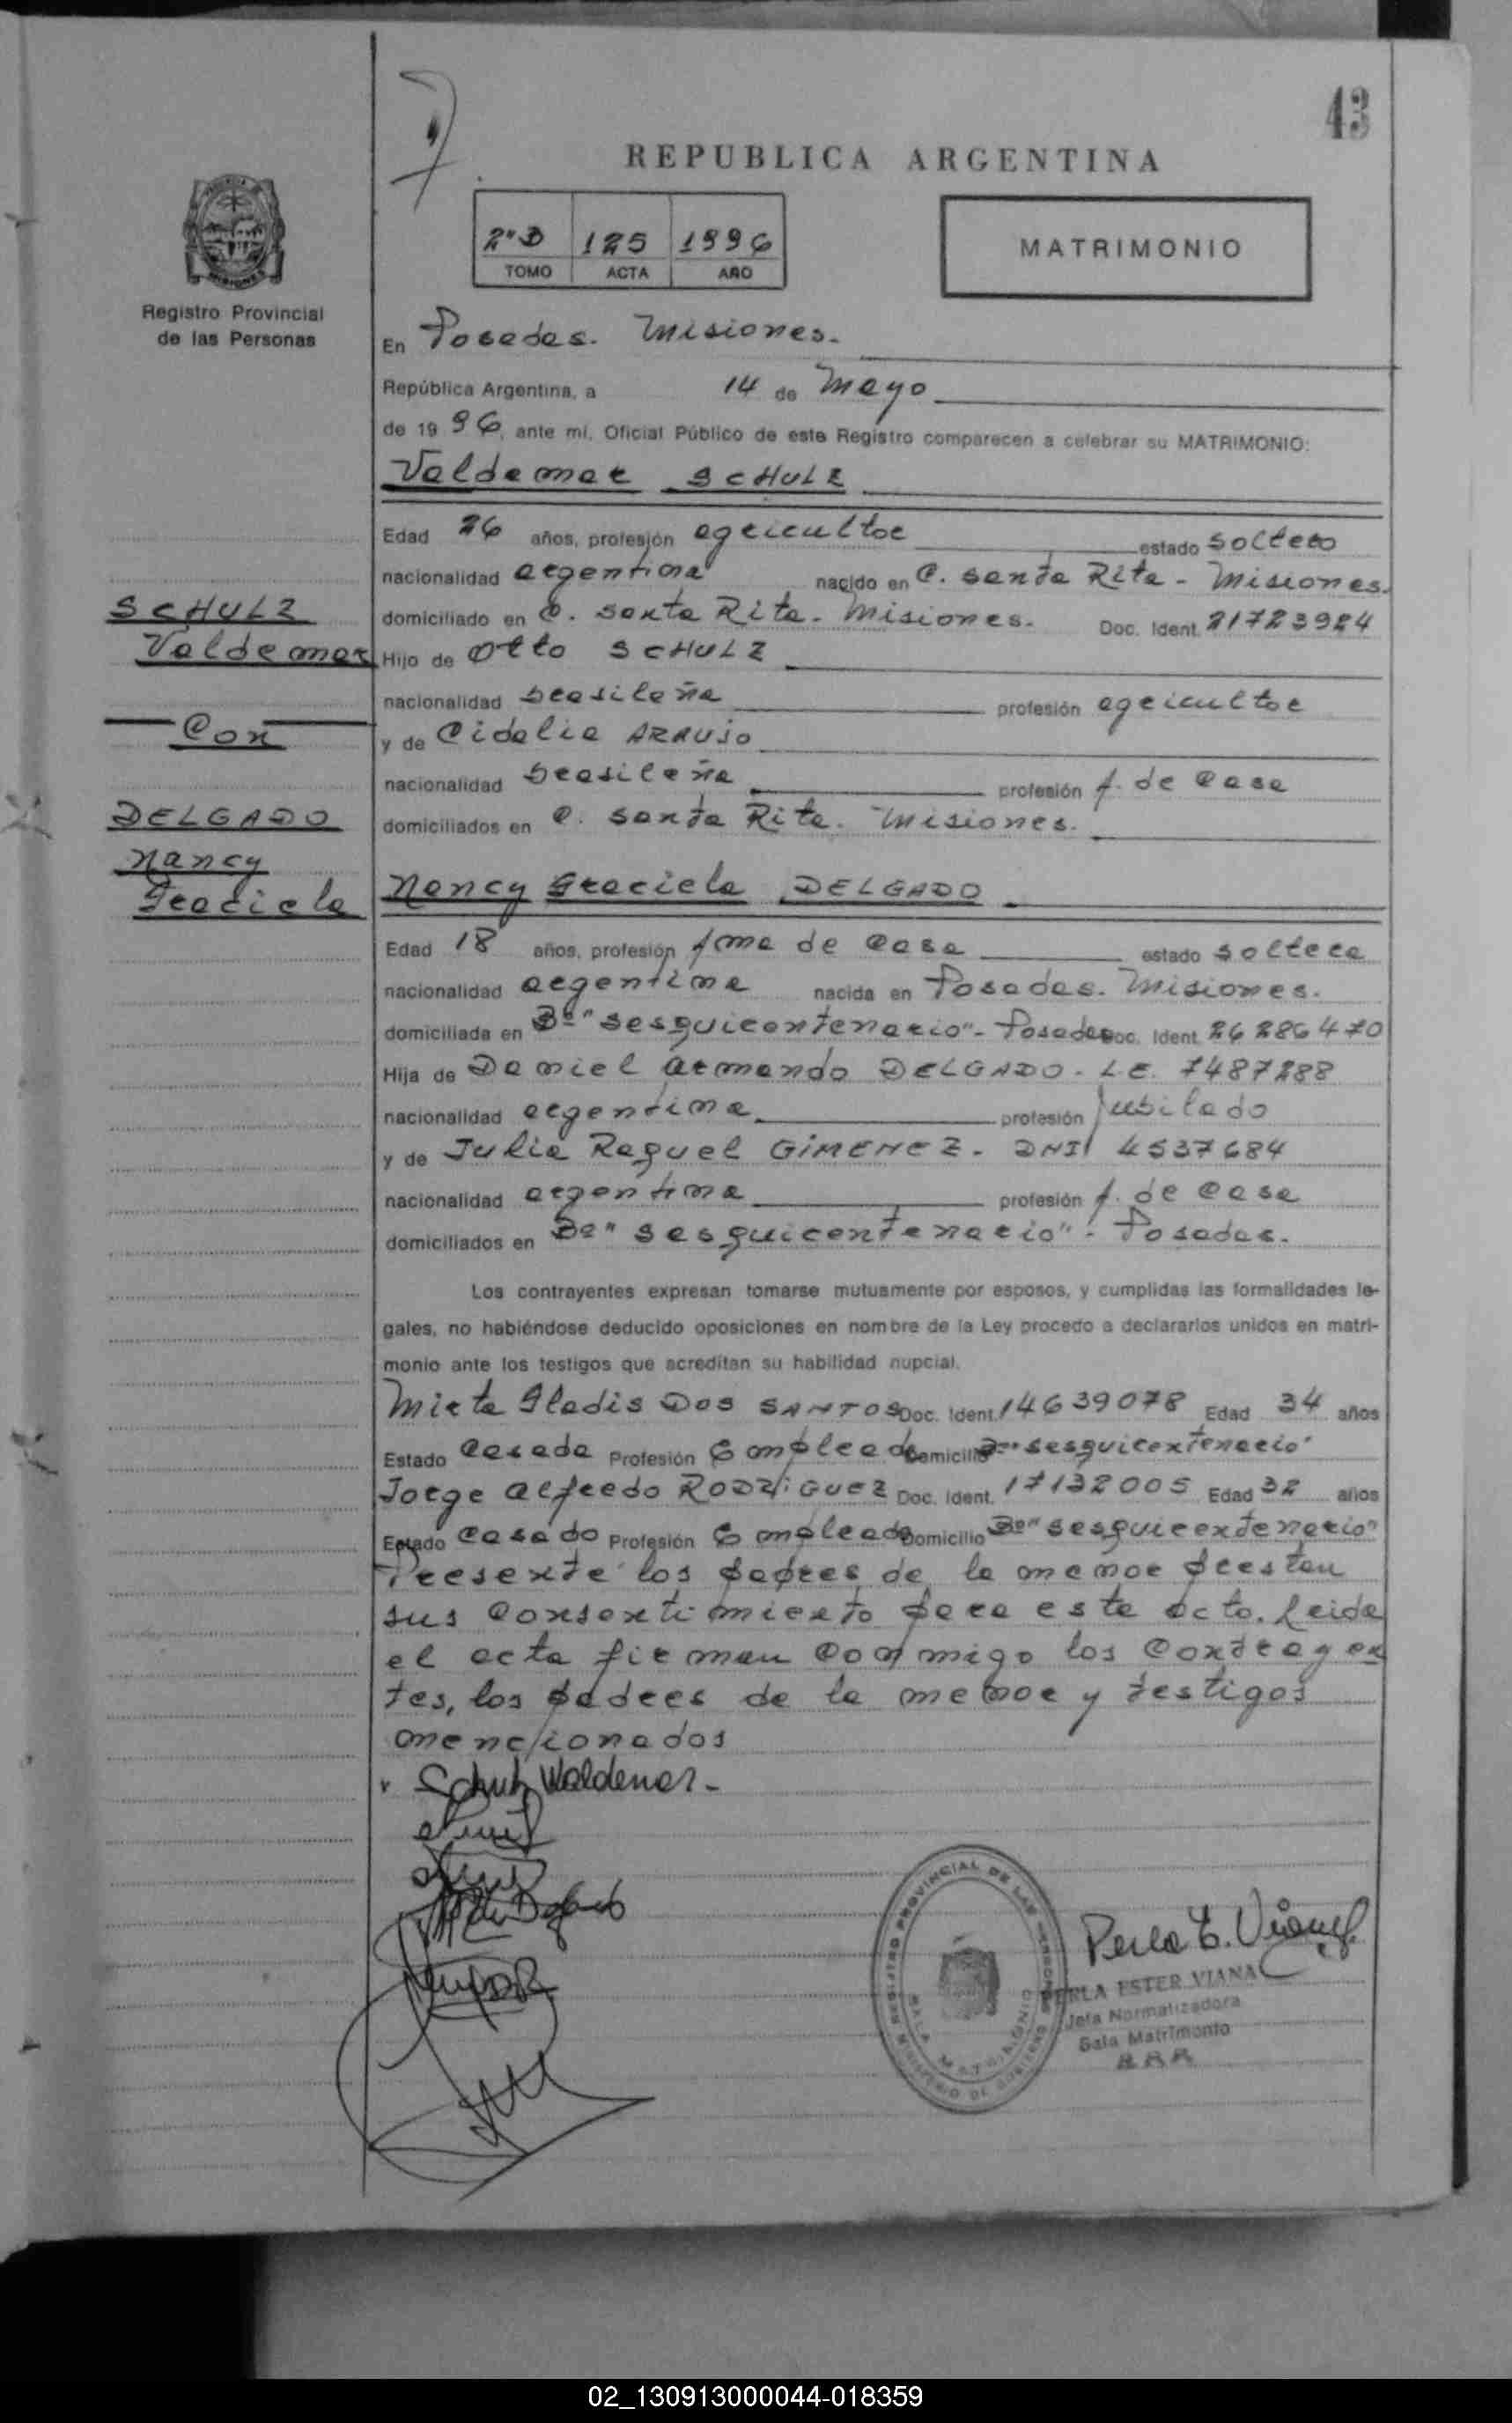 43
REPUBLICA ARGENTINA
2º D 125 1996
TOMO ACTA AÑO
MATRIMONIO
Registro Provincial
de las Personas
En Posadas. Misiones.
República Argentina, a 14 de Mayo
de 1996, ante mí, Oficial Público de este Registro comparecen a celebrar su MATRIMONIO:
Valdemar SCHULZ
Edad 26 años, profesión agricultor estado soltero
nacionalidad argentina nacido en C. Santa Rita - Misiones.
domiciliado en C. Santa Rita - Misiones. Doc. Ident. 21723924
Hijo de Otto SCHULZ
nacionalidad brasileña profesión agricultor
y de Cidalia ARAUJO
nacionalidad brasileña profesión A. de Casa
domiciliados en C. Santa Rita. Misiones.
SCHULZ
Valdemar
Con
DELGADO
Nancy
Graciela
Nancy Graciela DELGADO
Edad 18 años, profesión Ama de Casa estado soltera
nacionalidad argentina nacida en Posadas. Misiones.
domiciliada en Bº "Sesquicentenario" - Posadas Doc. Ident. 26286470
Hija de Daniel Armando DELGADO - L.E. 7487288
nacionalidad argentina profesión Jubilado
y de Julia Raquel GIMENEZ - DNI 4537684
nacionalidad argentina profesión A. de Casa
domiciliados en Bº "Sesquicentenario" - Posadas.
Los contrayentes expresan tomarse mutuamente por esposos, y cumplidas las formalidades le-
gales, no habiéndose deducido oposiciones en nombre de la Ley procedo a declararlos unidos en matri-
monio ante los testigos que acreditan su habilidad nupcial.
Mirta Gladis DOS SANTOS Doc. Ident. 14639078 Edad 34 años
Estado Casada Profesión Empleada Domicilio Bº "Sesquicentenario"
Jorge Alfredo RODRIGUEZ Doc. Ident. 17132005 Edad 32 años
Estado Casado Profesión Empleado Domicilio Bº "Sesquicentenario"
Presente los padres de la menor prestan
sus Consentimiento para este acto. Leida
el acta firman conmigo los Contrayen
tes, los padres de la menor y testigos
mencionados
Schulz Waldemar -
Perla E. Viana
PERLA ESTER VIANA
Jefa Normatizadora
Sala Matrimonio
REGISTRO PROVINCIAL DE LAS PERSONAS
SALA MATRIMONIO
MINISTERIO DE GOBIERNO
02_130913000044-018359